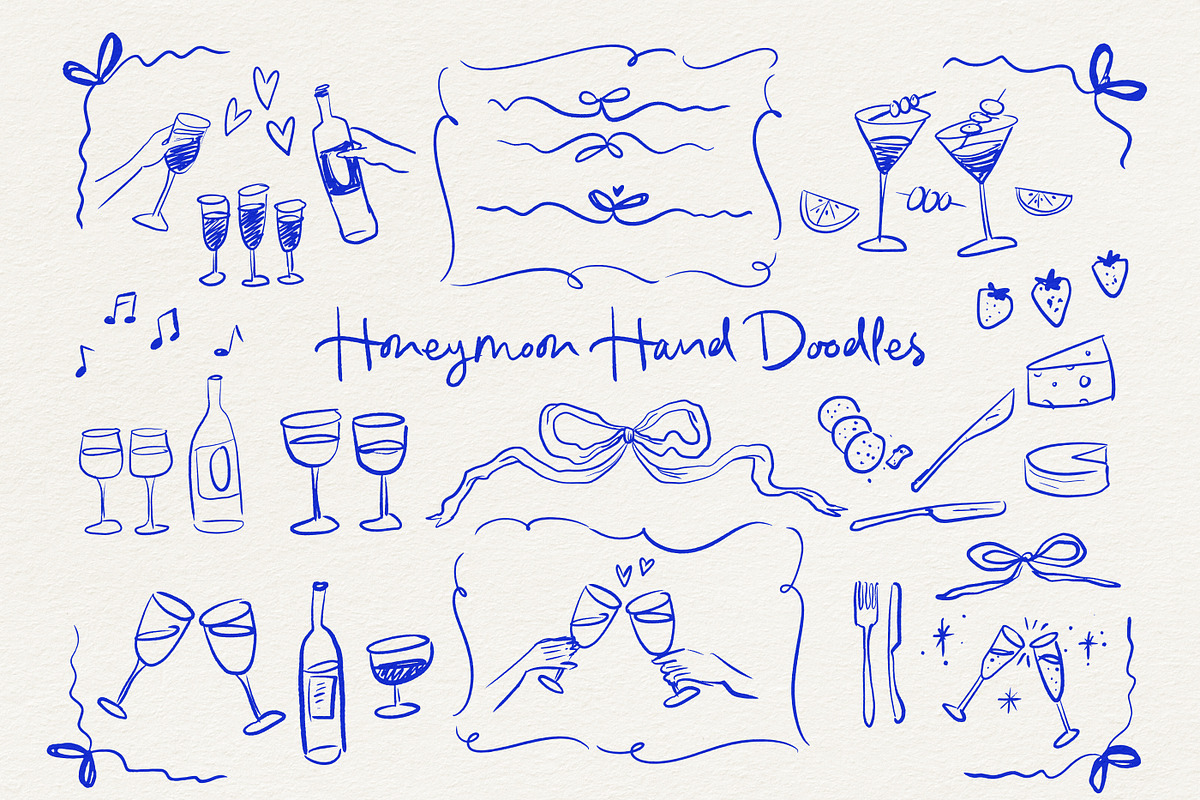 Honeymoon Hand Doodles